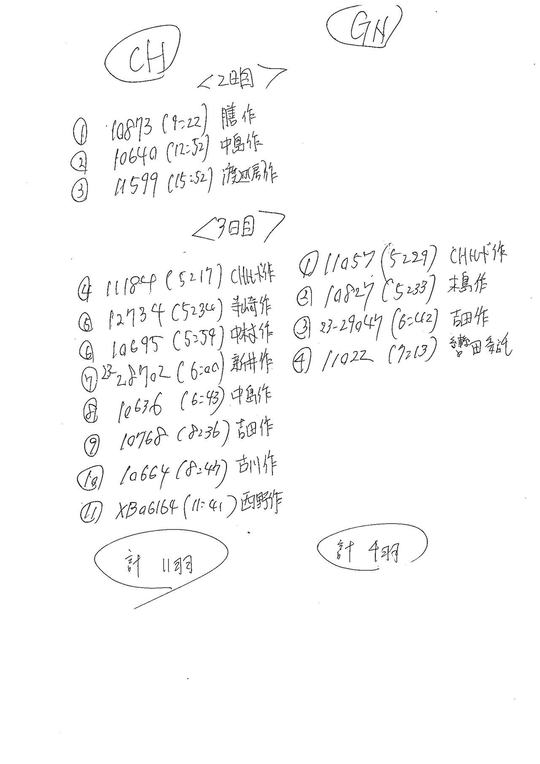 CH
GN
<2日目>
① 10873 (9:22) 膳作
② 10640 (12:52) 中島作
③ 11599 (15:52) 渡辺房作
<3日目>
④ 11184 (5:17) CHハード作
⑤ 12734 (5:34) 寺崎作
⑥ 10695 (5:59) 中村作
⑦ 23-28702 (6:00) 新井作
⑧ 10636 (6:43) 中島作
⑨ 10768 (8:36) 吉田作
⑩ 10664 (8:47) 古川作
⑪ XB06164 (11:41) 西野作
計 11羽
① 11057 (5:29) CHハード作
② 10827 (5:33) 木島作
③ 23-29047 (6:42) 吉田作
④ 11022 (7:13) 田委託
計 4羽